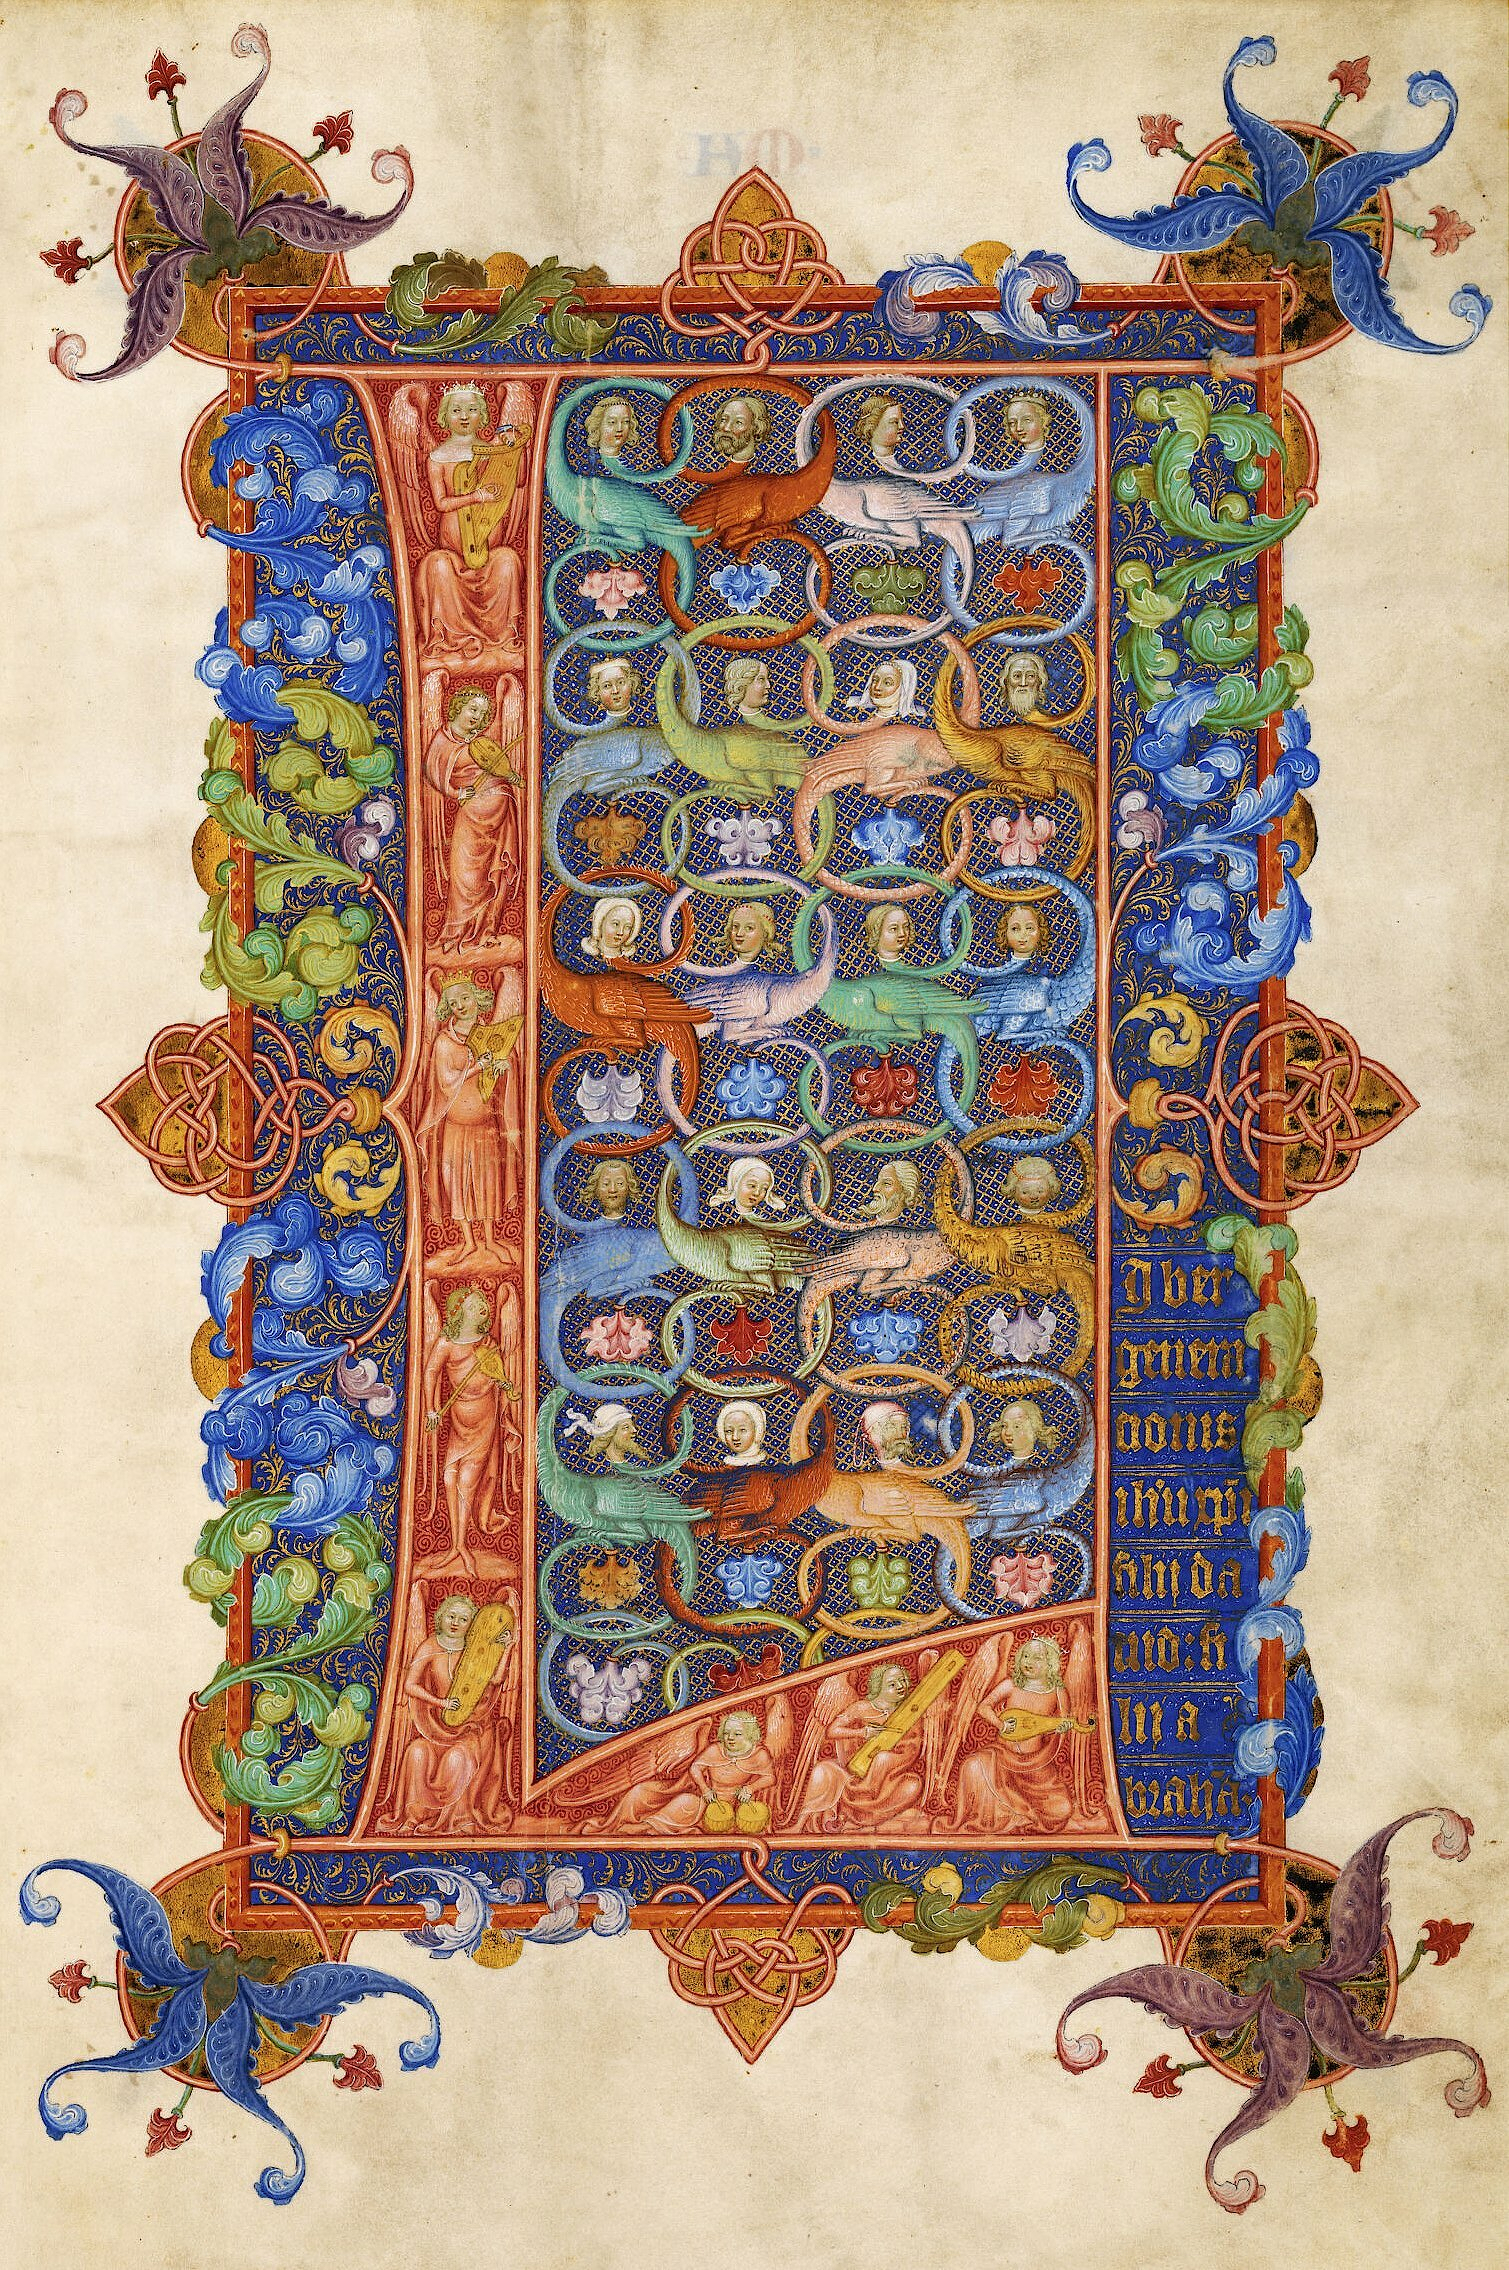 Lyber
genera
cionis
ihu xpi
filij da
uid: fi
lij a
braha.